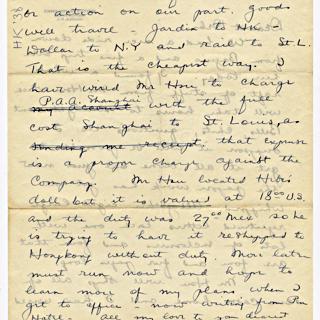 or action on our part. goods
will travel - Jardin to HK -
Dollar to N.Y and rail to St. L.
That is the cheapest way. I
have wired Mr Hsu to charge
P.A.A. Shanghai
my account with the full
cost Shanghai to St. Louis, as
sending me receipt, that expense
is a proper charge against the
Company. Mr Hsu located
doll but it is valued at 18.00 U.S.
and the duty was 27.00 Mex so he
is trying to have it reshipped to
Hongkong without duty. More later
must run now and hope to
learn more of my plans when I
get to office - now writing from
Hotel. All my love to you dearest